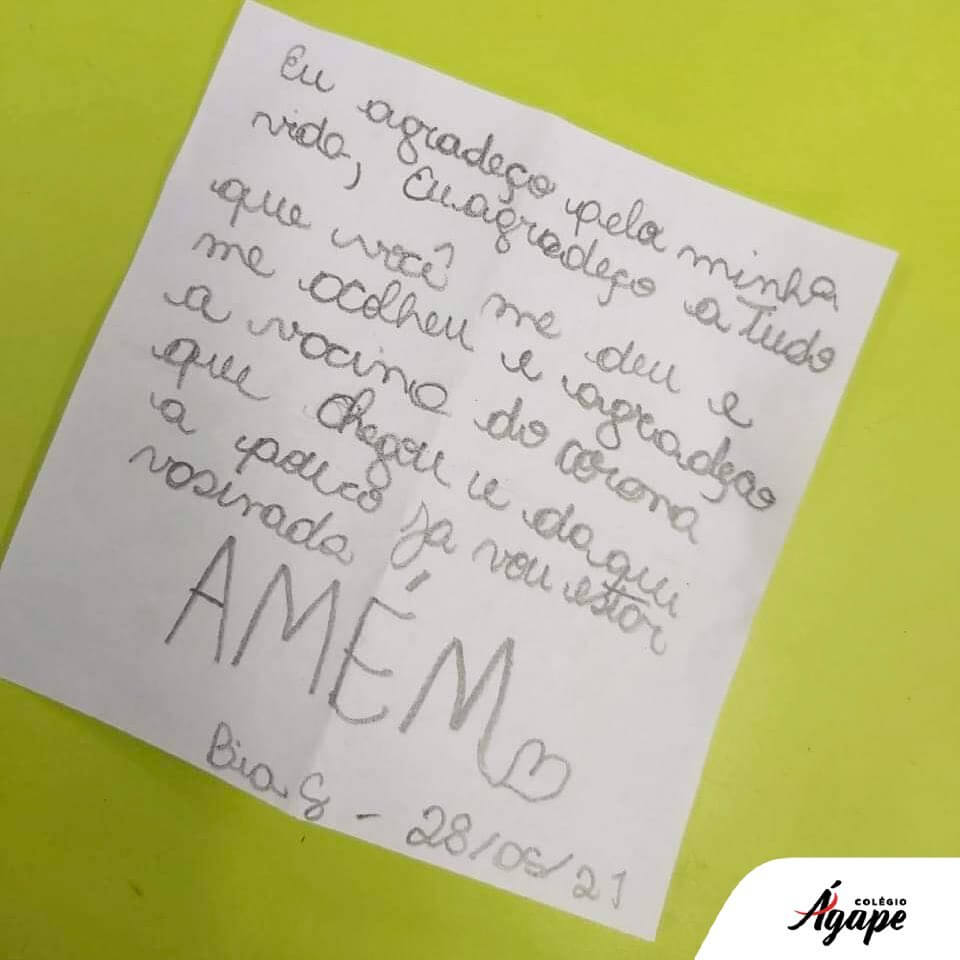 Eu agradeço pela minha
vida, Eu agradeço a Tudo
que você me deu e
me acolheu e agradeço
a vacina do corona
que chegou e daqui
a pouco ja vou estar
vasinada
AMÉM
Bia S - 28/05/21
COLÉGIO
Ágape